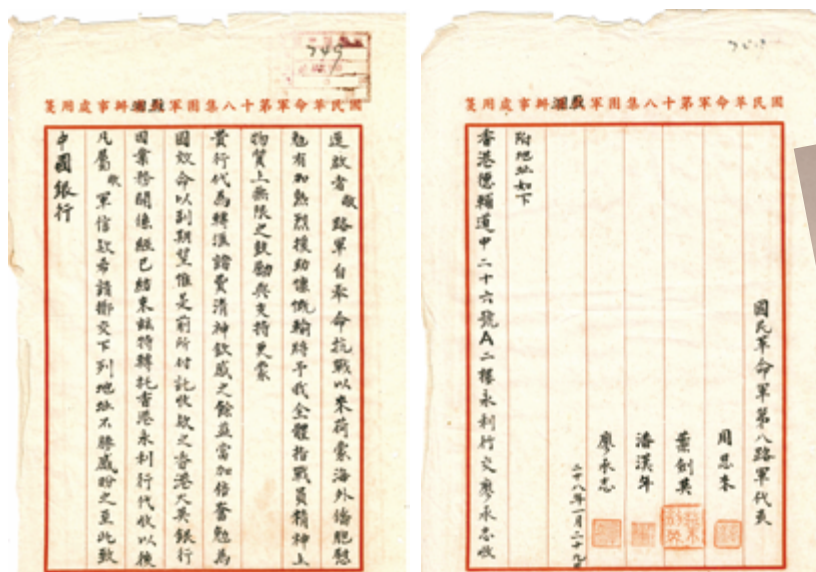 549
國民革命軍第十八集團軍駐辦事處用箋
逕啟者敝路軍自奉命抗戰以來荷蒙海外僑胞慰
勉有加熱烈援助慷慨輸將予我全體指戰員精神上
物質上無限之鼓勵與支持更蒙
貴行代為轉滙諸費清神欽感之餘益當加倍奮勉為
國效命以副期望惟是前所付託收欵之香港大英銀行
因業務關係經已結束茲特轉托香港永利行代收以後
凡屬敝軍信欵希請擲交下列地址不勝感盼之至此致
中國銀行
國民革命軍第十八集團軍駐辦事處用箋
國民革命軍第八路軍代表
周恩來
葉劍英
潘漢年
廖承志
二十八年一月二十九日
附地址如下
香港德輔道中二十六號A二樓永利行交廖承志收